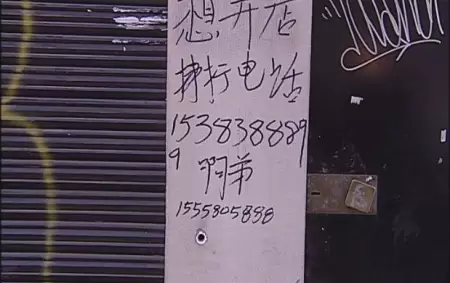 想开店
打电话
1538388889
9 啊弟
1555805888